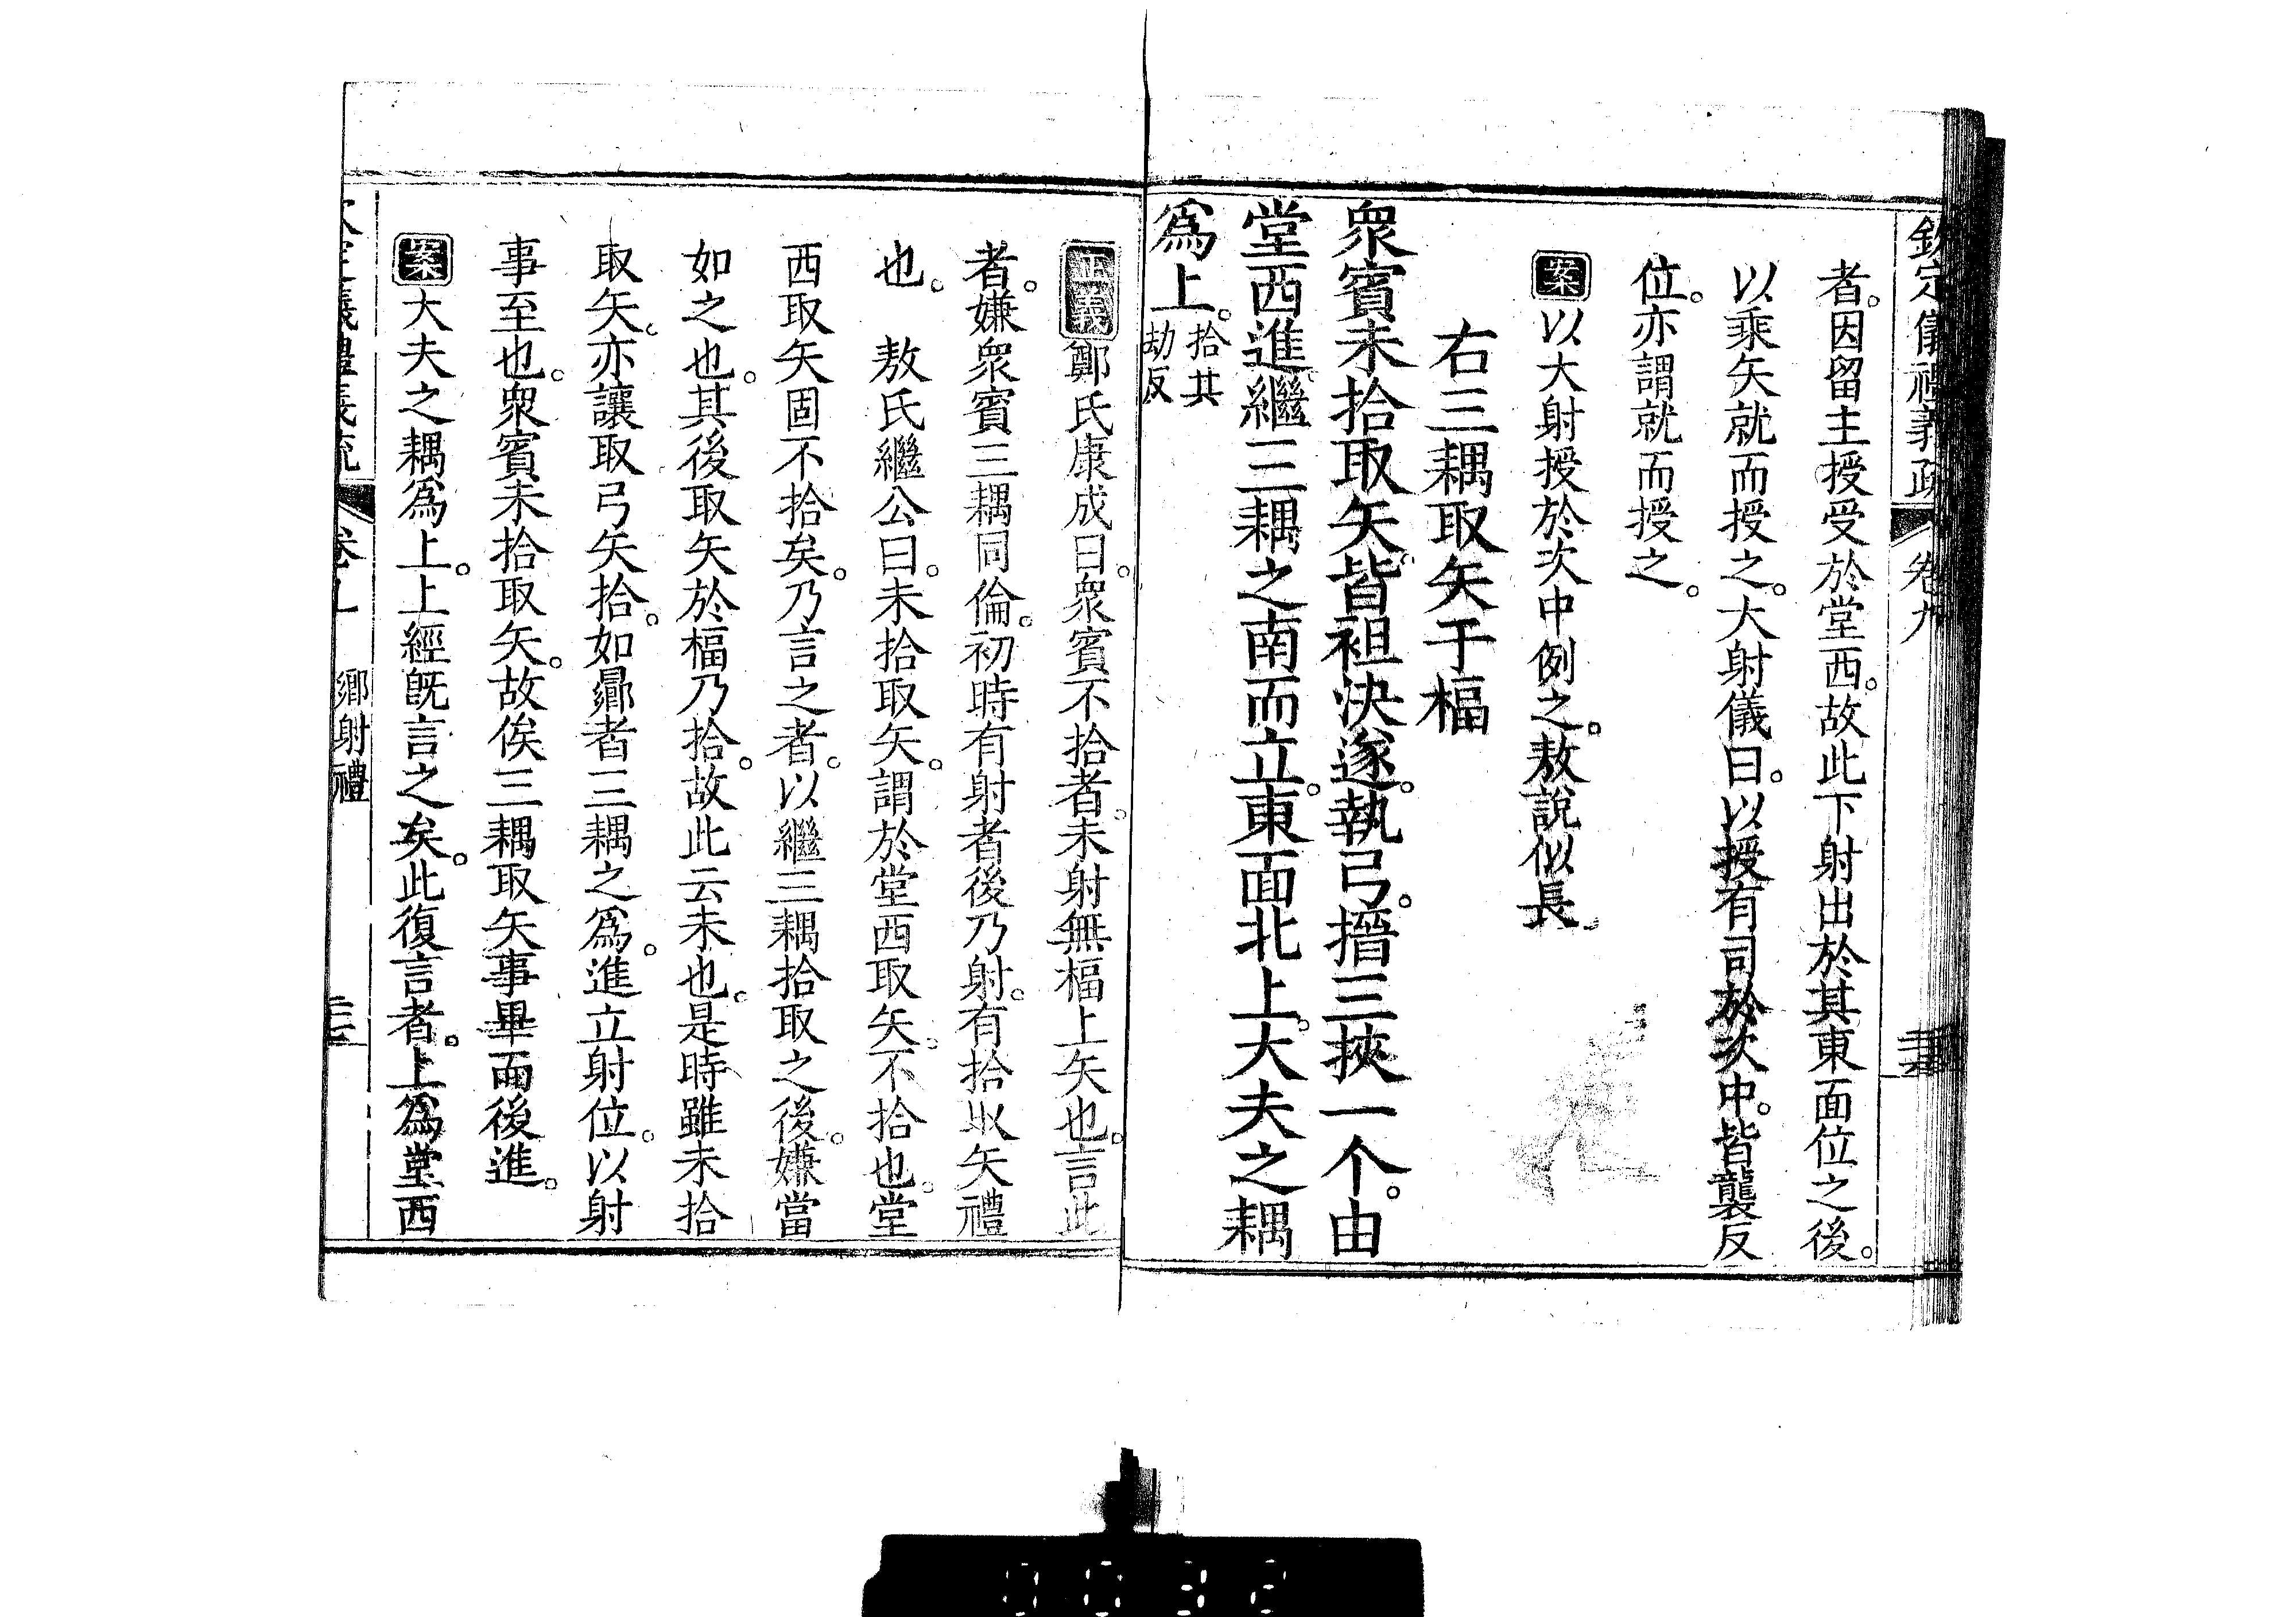 欽定儀禮義疏 卷九
者。因留主授受於堂西。故此下射出於其東面位之後。
以乘矢就而授之。大射儀曰。以授有司於次中。皆襲反
位。亦謂就而授之。
案以大射授於次中例之。敖說似長。
右三耦取矢于楅
衆賓未拾取矢。皆袒決遂。執弓。搢三挾一个。由
堂西進。繼三耦之南而立。東面北上。大夫之耦
爲上。拾其劫反
正義鄭氏康成曰。衆賓不拾者。未射無楅上矢也。言此
者。嫌衆賓三耦同倫。初時有射者後乃射。有拾取矢禮
也。 敖氏繼公曰。未拾取矢。謂於堂西取矢。不拾也。堂
西取矢固不拾矣。乃言之者。以繼三耦拾取之後。嫌當
如之也。其後取矢於楅乃拾。故此云未也。是時雖未拾
取矢。亦讓取弓矢拾。如曏者三耦之爲。進立射位。以射
事至也。衆賓未拾取矢。故俟三耦取矢事畢而後進。
案大夫之耦爲上。上經旣言之矣。此復言者。上爲堂西
鄉射禮